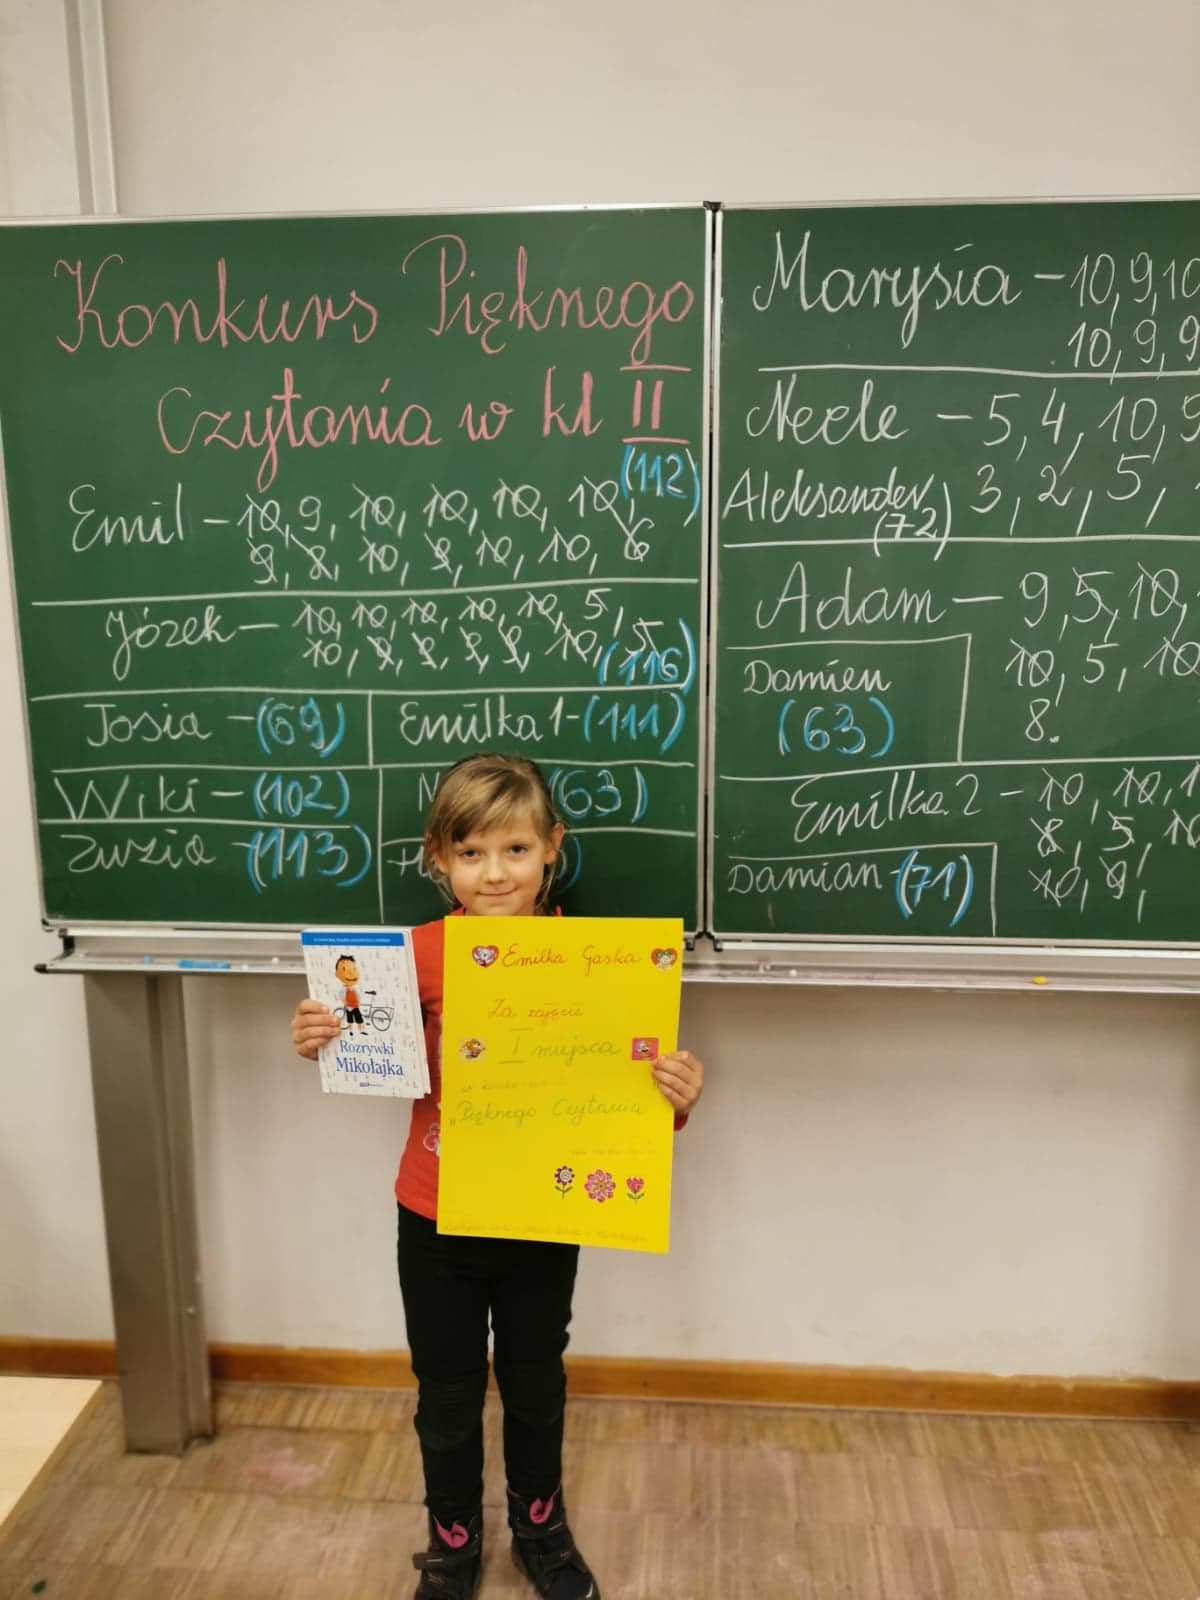 Konkurs Pięknego
Czytania w kl II
Emil – 10, 9, 10, 10, 10, 10, (112)
9, 8, 10, 9, 10, 10, 6
Józek – 10, 10, 10, 10, 10, 5,
10, 9, 9, 9, 9, 10, 5 (116)
Josia – (69)
Emilka 1 – (111)
Wiki – (102)
(63)
Zuzia – (113)
Marysia – 10, 9, 10
10, 9, 9
Neele – 5, 4, 10, 5
Aleksander 3, 2, 5,
(72)
Adam – 9, 5, 10,
10, 5, 10
8.
Damien
(63)
Emilka 2 – 10, 10, 1
8, 5, 10
10, 9,
Damian – (71)
Rozrywki
Mikołajka
Emilka Gaska
Za zajęcie
I miejsca
"Pięknego Czytania